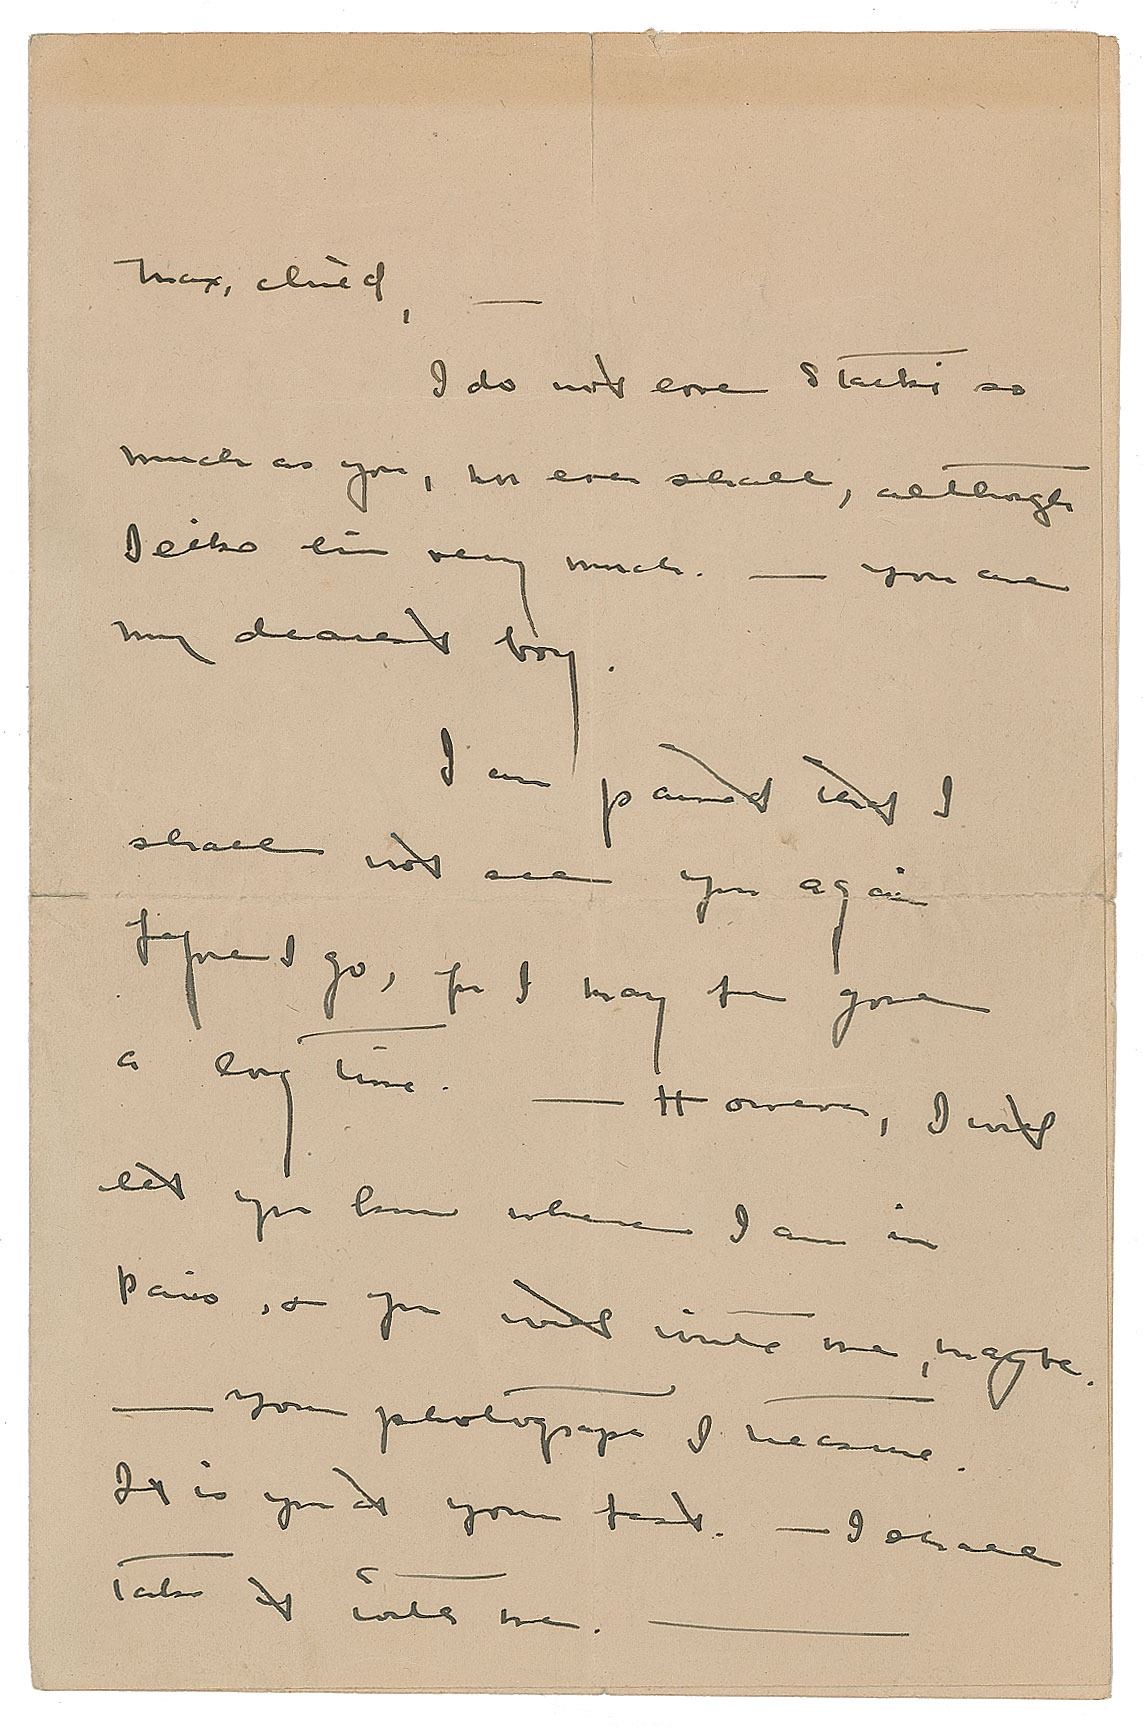 Max, child, —
I do not love Stacki so
much as you, nor ever shall, although
I like him very much. — You are
my dearest boy.
I am pained that I
shall not see you again
before I go, for I may be gone
a long time. — However, I will
let you know where I am in
Paris, & you will write me, maybe.
— Your photograph I treasure.
It is you at your best. — I shall
take it with me. —